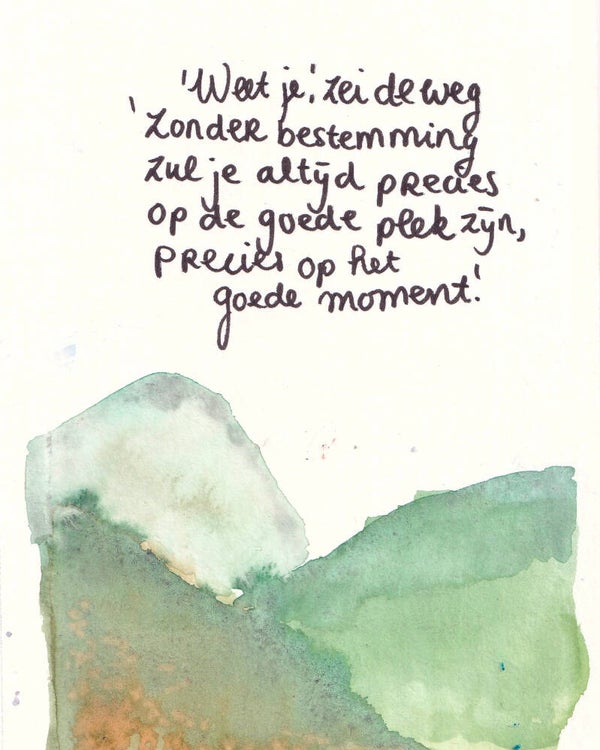 'Weet je', zei de weg
'Zonder bestemming
zul je altijd precies
op de goede plek zijn,
precies op het
goede moment.'